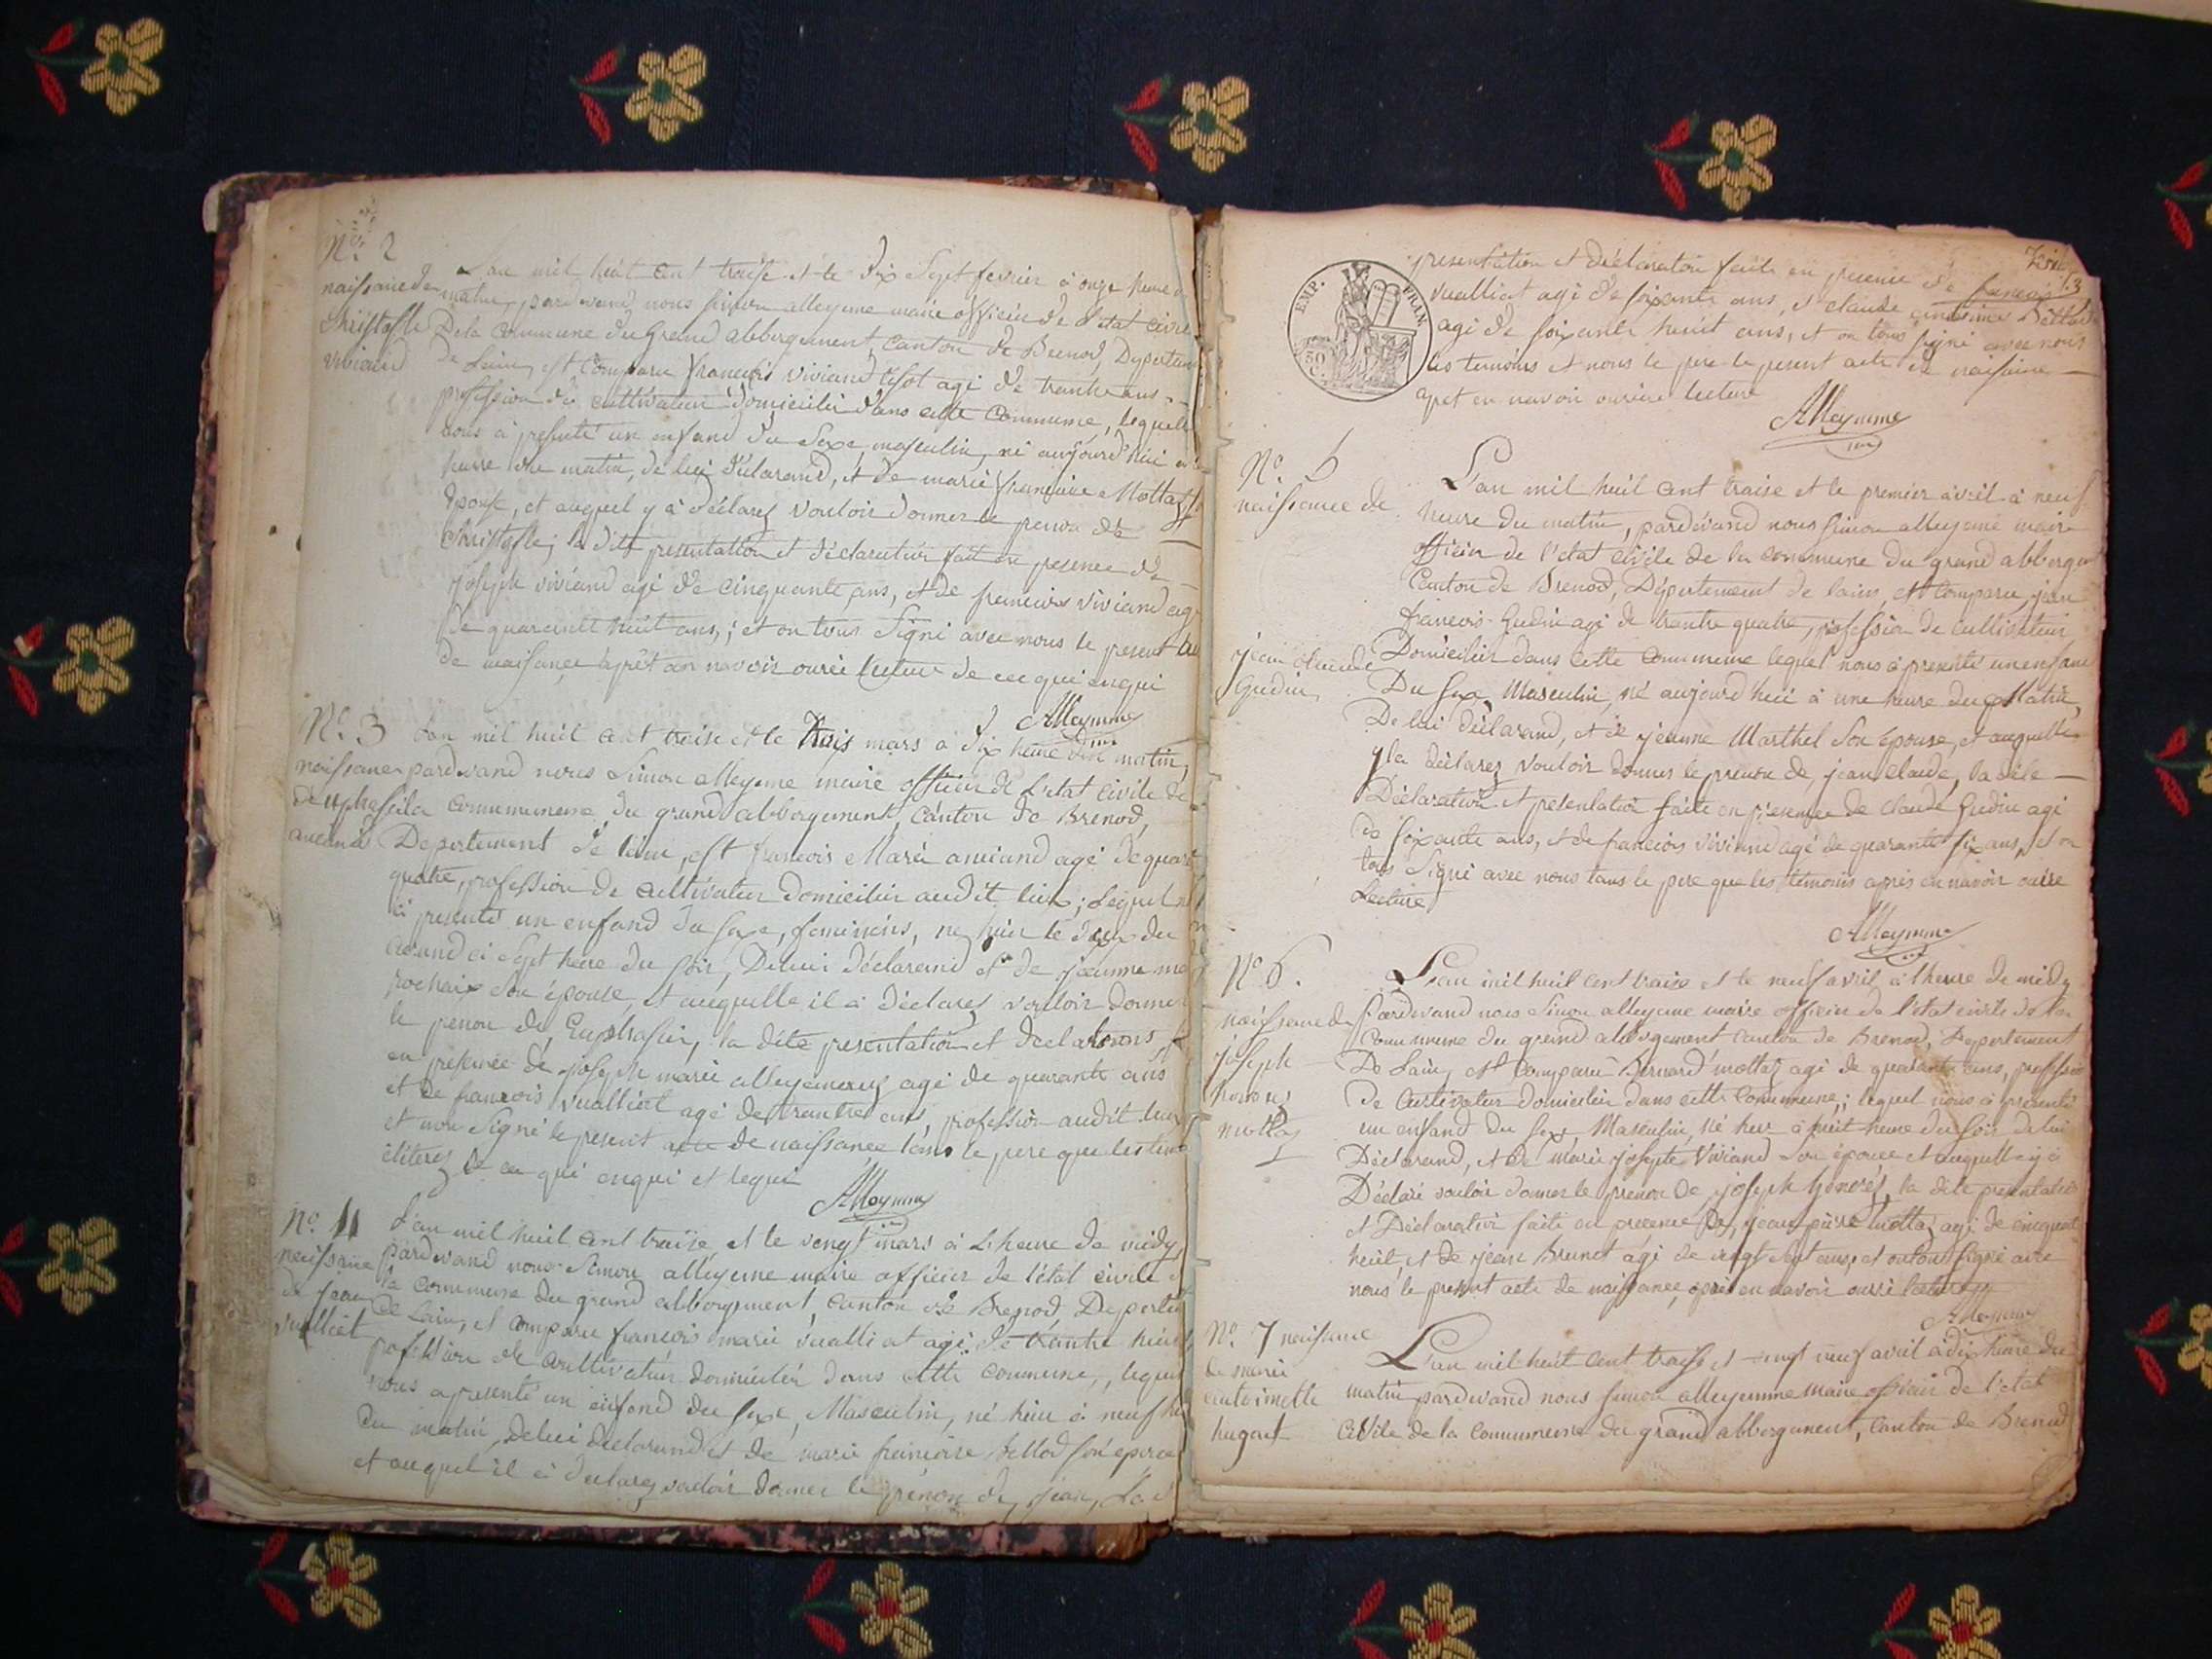 No. 2
naissance de
Christofle
Viviand
L'an mil huit cent traise et le dix Sept fevrier à onze heure
matin, pardevand nous Simon alleyme maire officier de l'état civile
De la Commune du Grand abbergement, canton de Brenod, Departem
De Lain, est Comparu francois viviand tisot agé de trante ans
profession de cultivateur domicilié dans cette Commune, lequel
nous à présenté un enfand du Sexe masculin, né aujourd'hui
heure du matin, de lui déclarand, et de marie francoise Mottaz
Epouse, et auquel y à déclarez vouloir donner le penon de
Christofle; la dite presentation et déclaration fait en presence de
joseph viviand agé de cinquante ans, et de francois viviand agé
de quarante huit ans,; et on tous Signé avec nous le present
de naissance aprêt an navoir ouiee lecture de ce qui enqui
Alleymme
No. 3
naissance
de uphrasila
anciand
Lan mil huit cent traise et le trois mars à dix heure du matin,
pardevand nous Simon alleyme maire officier de L'etat civile de
la communeme du grand abbergement, canton de Brenod,
Departement de lain, est francois Marie anciand agé de quar
quatre, profession de cultivateur domicilier audit lieu; Lequel n
à presenté un enfand du Sexe, feminins, ne hier le deux du
courand à Sept heure du Soir, De lui déclarand et de jeanne ma
rochaix Son épouse, et auquelle il à déclarez vouloir donner
le penon de Euphrasie, la dite presentation et declarations
en presence de joseph marie alleyemeux agé de quarante ans
et de francois Vualliat agé de trante ans, profession audit lieu
et non Signé le present acte de naissance tans le pere que les temo
iliterez de ce qui enqui et requi
Alleymme
No. 4
naissance
de jean
Vualliat
L'an mil huil cent traise et le vengt mars à L'heure de midy
pardevand nous Simon alleyeme maire officier de l'état civile
la commune du grand abbergement, canton de Brenod, Departem
de Lain, et comparu francois marie Vualliat agé de trante huit
profession de cultivateur domicilier dans cette commune, lequel
nous a presenté un enfand du Sexe, Masculin, né hier à neuf he
du matin, de lui declarand et de marie francoise bellod son epouse
et auquel il à declarez vouloir donner le prénon de jean, La d
presentation et déclaration faite en presence de francois
Vualliat agé de soixante ans, et claude
agé de soixante heuit ans, et on tous signé avec nous
les temoins et nous le pere le present acte de naisance
apret en navoir ouiiee lecture
3
EMP. FRAN.
50 C.
Alleymme
No. 5
naissance de
jean claude
Gudin
L'an mil huil cent traise et le premier avril à neuf
heure du matin, pardevand nous Simon alleyeme maire
officier de l'etat civile de la commune du grand abbergem
Canton de Brenod, Département de lain, est Comparu jean
francois Gudin agé de trantre quatre, profession de cultivateur
Domicilier dans cette commune lequel nous à presenté un enfand
Du Sexe Masculin, né aujourd huit à une heure du Matin,
De lui déclarand, et de jeanne Marthel Son épouse, et auquelle
y la declarez vouloir donner le prenon de jean claude, la dite
Déclaration et presentation faite en presence de claude Gudin agé
de soixante ans, et de francois viviand agé de quarante six ans, et on
tous Signé avec nous tans le pere que les témoins aprés en navoir ouiee
Lecture
Alleymme
No. 6.
naissance de
joseph
honoré
mottaz
L'an mil huil cent traise et le neuf avril à l'heure de midy
Pardevand nous Simon alleyeme maire officier de l'état civile de la
Commune du grand abbergement canton de Brenod, Departement
De Lain, est comparu Bernard mottaz agé de quarante ans, profession
de cultivateur domicilier dans cette commune,; lequel nous à presenté
un enfand du Sexe Masculin, né hier à huit heure du soir de lui
Déclarand, et de marie josephte Viviand Son épouse et auquelle y à
Déclaré vouloir donner le prenon de joseph honoréz, la dite presentation
et Déclaration faite en presence de jean pierre mottaz agé de cinquante
heuil, et de jean Brunet agé de vingt Sept ans, et on tous Signé avec
nous le present acte de naissance aprés en navoir ouiee lecture
Alleymme
No. 7 naissance
de marie
antoinette
hugont
L'an mil heuit cent traise et vengt neuf avril à dix heure du
matin pardevand nous Simon alleyemme Maire officier de l'etat
Civile de la communeme du grand abbergement, canton de Brenod